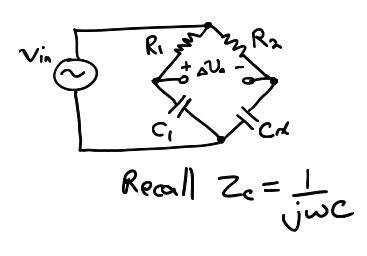 Vin
R1
R2
+ ΔVo -
C1
Cx
Recall Zc = 1/jωC